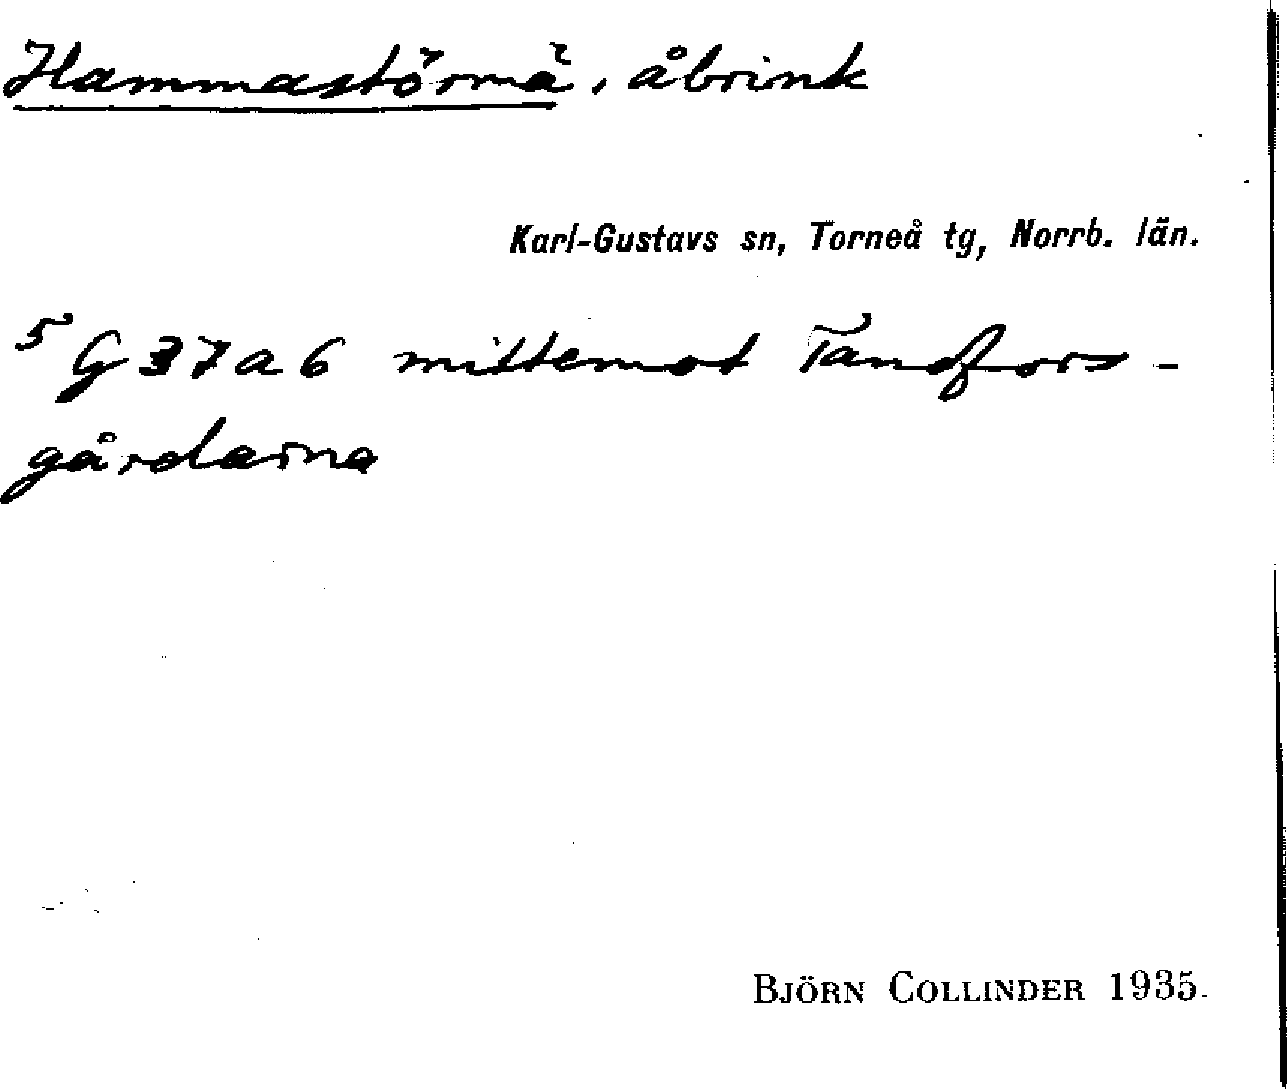 Hammastörmä, åbrink
Karl-Gustavs sn, Torneå tg, Norrb. län.
5 G 37 a 6 mittemot Tandfors-
gårdarna
BJÖRN COLLINDER 1935.